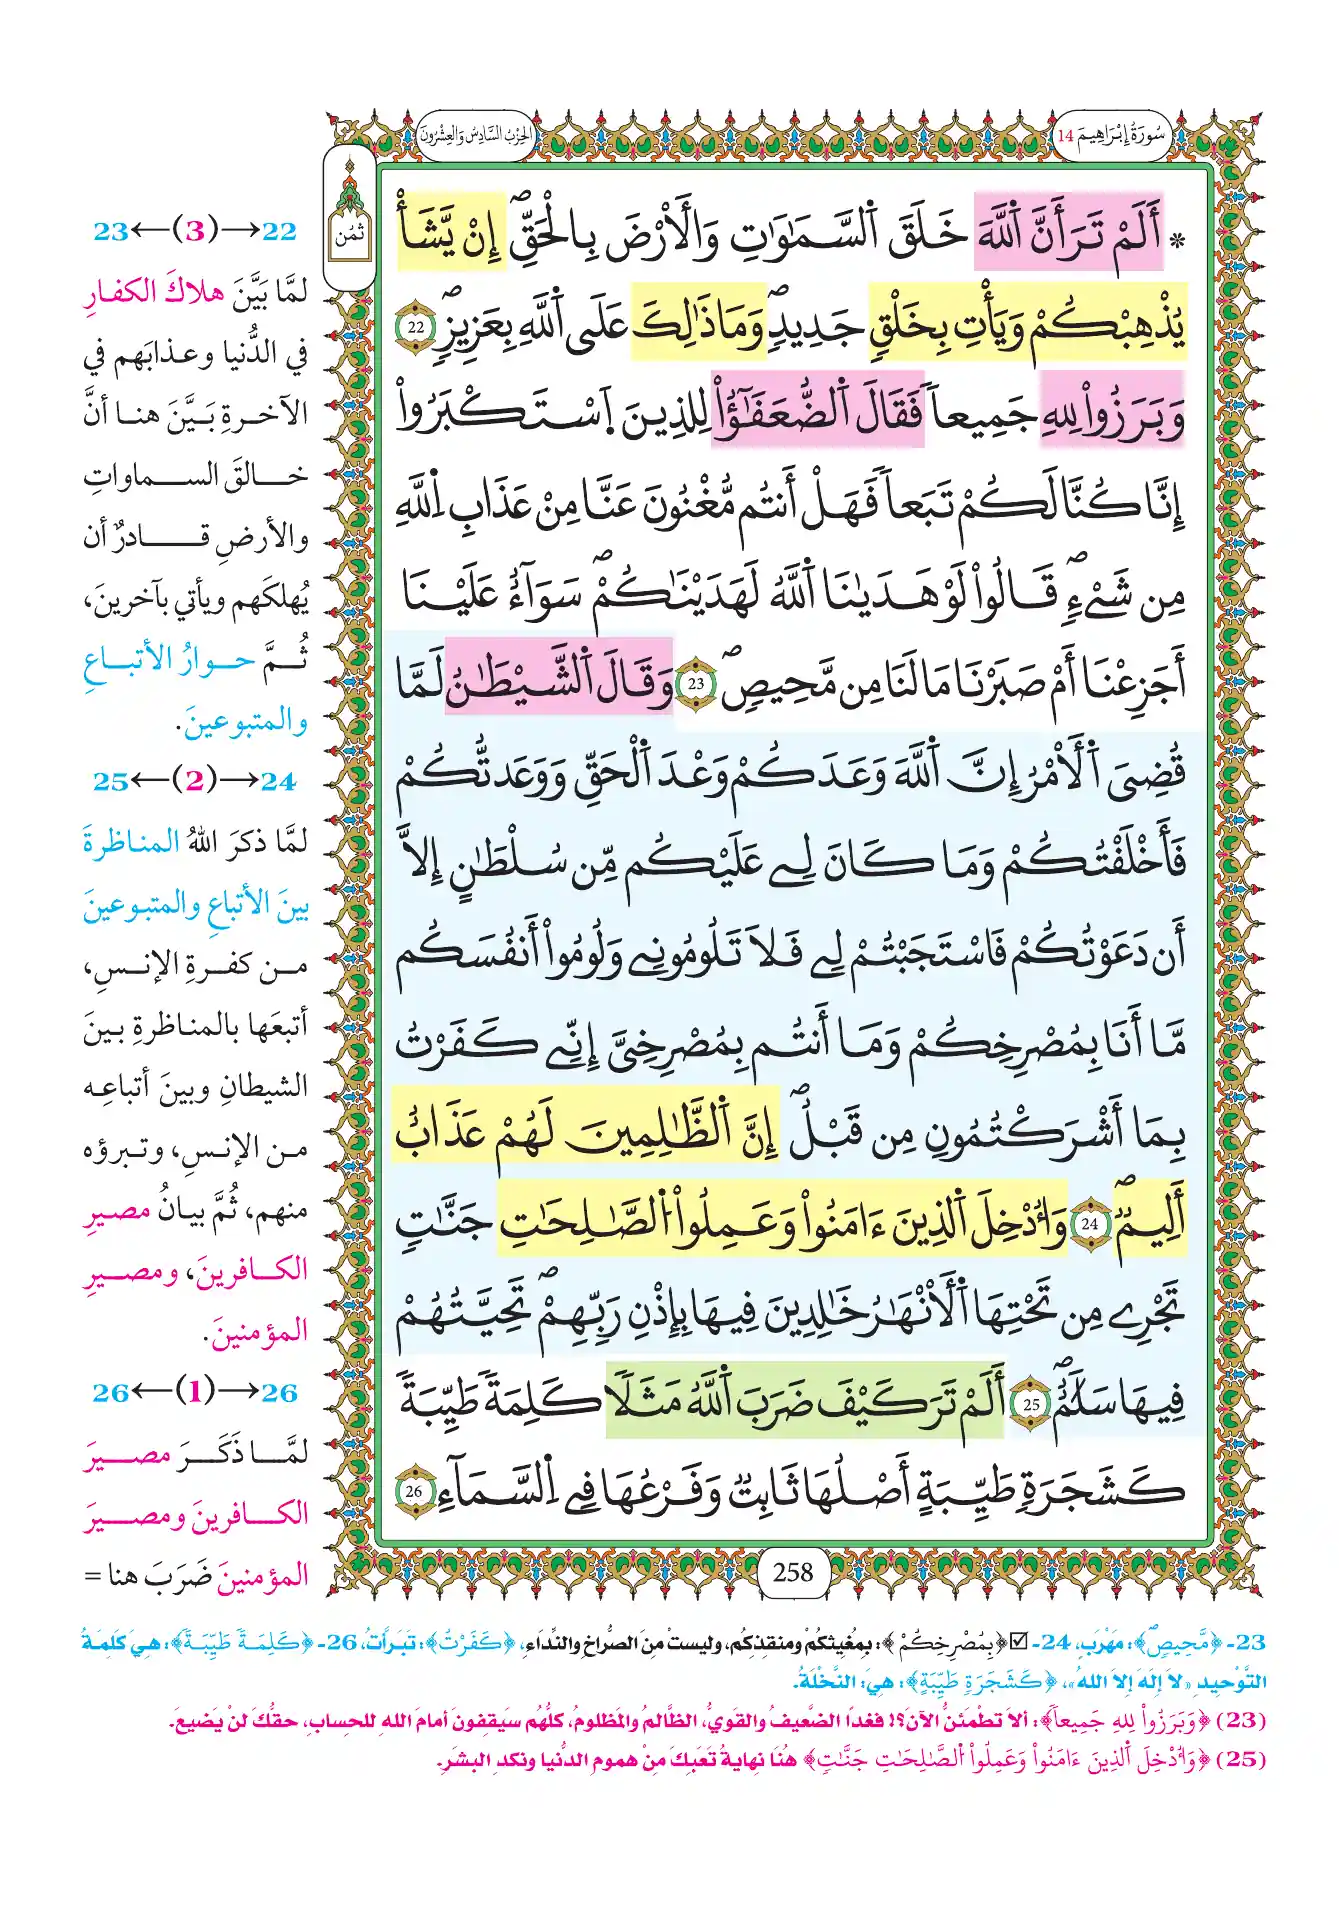 سُورَةُ إِبْرَاهِيمَ 14
الحِزْبُ السَّادِسُ وَالعِشْرُونَ
ثُمُن
* أَلَمْ تَرَ أَنَّ اَ۬للَّهَ خَلَقَ اَ۬لسَّمَٰوَٰتِ وَالَارْضَ بِالْحَقِّۖ إِنْ يَّشَأْ
يُذْهِبْكُمْ وَيَأْتِ بِخَلْقٍ جَدِيدٍۖ وَمَا ذَٰلِكَ عَلَى اَ۬للَّهِ بِعَزِيزٍۖ 22
وَبَرَزُواْ لِلهِ جَمِيعاٗ فَقَالَ اَ۬لضُّعَفَٰٓؤُاْ لِلذِينَ اَ۪سْتَكْبَرُوٓاْ
إِنَّا كُنَّا لَكُمْ تَبَعاٗ فَهَلْ أَنتُم مُّغْنُونَ عَنَّا مِنْ عَذَابِ اِ۬للَّهِ
مِن شَےْءٍۖ قَالُواْ لَوْ هَدَيٰنَا اَ۬للَّهُ لَهَدَيْنَٰكُمْۖ سَوَآءٌ عَلَيْنَا
أَجَزِعْنَا أَمْ صَبَرْنَا مَا لَنَا مِن مَّحِيصٖۖ 23 وَقَالَ اَ۬لشَّيْطَٰنُ لَمَّا
قُضِيَ اَ۬لَامْرُ إِنَّ اَ۬للَّهَ وَعَدَكُمْ وَعْدَ اَ۬لْحَقِّ وَوَعَدتُّكُمْ
فَأَخْلَفْتُكُمْ وَمَا كَانَ لِے عَلَيْكُم مِّن سُلْطَٰنٍ إِلَّا
أَن دَعَوْتُكُمْ فَاسْتَجَبْتُمْ لِے فَلَا تَلُومُونِے وَلُومُواْ أَنفُسَكُم
مَّا أَنَا بِمُصْرِخِكُمْ وَمَا أَنتُم بِمُصْرِخِيَّ إِنِّے كَفَرْتُ
بِمَا أَشْرَكْتُمُونِ مِن قَبْلُۖ إِنَّ اَ۬لظَّٰلِمِينَ لَهُمْ عَذَابٌ
أَلِيمٞۖ 24 وَأُدْخِلَ اَ۬لذِينَ ءَامَنُواْ وَعَمِلُواْ اُ۬لصَّٰلِحَٰتِ جَنَّٰتٖ
تَجْرِے مِن تَحْتِهَا اَ۬لَانْهَٰرُ خَٰلِدِينَ فِيهَا بِإِذْنِ رَبِّهِمْۖ تَحِيَّتُهُمْ
فِيهَا سَلَٰمٌۖ 25 أَلَمْ تَرَ كَيْفَ ضَرَبَ اَ۬للَّهُ مَثَلاٗ كَلِمَةٗ طَيِّبَةٗ
كَشَجَرَةٖ طَيِّبَةٍ أَصْلُهَا ثَابِتٞ وَفَرْعُهَا فِے اِ۬لسَّمَآءِ 26
258
22→(3)←23
لمَّا بَيَّنَ هلاكَ الكفارِ
في الدُّنيا وعذابَهم في
الآخرةِ بَيَّنَ هنا أنَّ
خالقَ السماواتِ
والأرضِ قادرٌ أن
يُهلكَهم ويأتي بآخرينَ،
ثُمَّ حوارُ الأتباعِ
والمتبوعينَ.
24→(2)←25
لمَّا ذكرَ اللهُ المناظرةَ
بينَ الأتباعِ والمتبوعينَ
من كفرةِ الإنسِ،
أتبعَها بالمناظرةِ بينَ
الشيطانِ وبينَ أتباعِه
من الإنسِ، وتبرؤه
منهم، ثُمَّ بيانُ مصيرِ
الكافرينَ، ومصيرِ
المؤمنينَ.
26→(1)←26
لمَّا ذَكَرَ مصيرَ
الكافرينَ ومصيرَ
المؤمنينَ ضَرَبَ هنا =
23- ﴿مَّحِيصٖۖ﴾: مَهْرَبٍ، 24- ☑ ﴿بِمُصْرِخِكُمْ﴾: بِمُغِيثِكُمْ ومنقذِكُم، وليستْ منَ الصُّراخِ والنِّداءِ، ﴿كَفَرْتُ﴾: تَبَرَّأتُ، 26- ﴿كَلِمَةٗ طَيِّبَةٗ﴾: هِيَ كَلِمَةُ
التَّوْحِيدِ «لَا إِلَهَ إِلَّا اللهُ»، ﴿كَشَجَرَةٖ طَيِّبَةٍ﴾: هِيَ: النَّخْلَةُ.
(23) ﴿وَبَرَزُواْ لِلهِ جَمِيعاٗ﴾: ألا تطمئنُّ الآنَ؟! فغداً الضَّعيفُ والقويُّ، الظَّالمُ والمظلومُ، كلُّهُم سَيقِفونَ أمامَ اللهِ للحسابِ، حقُّكَ لنْ يَضيعَ.
(25) ﴿وَأُدْخِلَ اَ۬لذِينَ ءَامَنُواْ وَعَمِلُواْ اُ۬لصَّٰلِحَٰتِ جَنَّٰتٖ﴾ هُنَا نهايةُ تَعَبِكَ مِنْ همومِ الدُّنيا ونكدِ البشرِ.